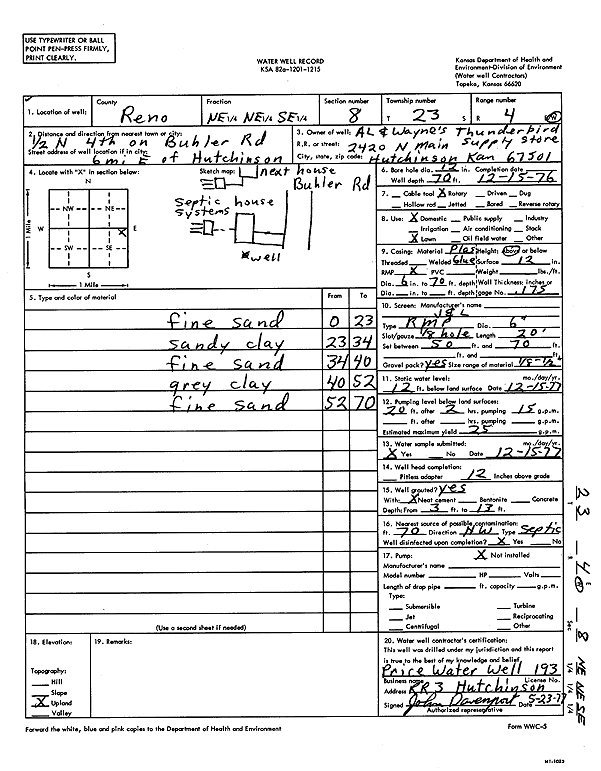 USE TYPEWRITER OR BALL
POINT PEN-PRESS FIRMLY,
PRINT CLEARLY.
WATER WELL RECORD
KSA 82a-1201-1215
Kansas Department of Health and
Environment-Division of Environment
(Water well Contractors)
Topeka, Kansas 66620
1. Location of well:
County
Reno
Fraction
NE 1/4 NE 1/4 SE 1/4
Section number
8
Township number
T 23 S
Range number
R 4 W
2. Distance and direction from nearest town or city:
1/2 N 4th on Buhler Rd
Street address of well location if in city:
6 mi E of Hutchinson
3. Owner of well: AL & Wayne's Thunderbird
Supply Store
R.R. or street: 2420 N. Main
City, state, zip code: Hutchinson Kan 67501
4. Locate with "X" in section below:
N
NW NE
W X E
SW SE
S
1 Mile
1 Mile
Sketch map:
next house
Buhler Rd
Septic house
systems
x well
6. Bore hole dia. 12 in. Completion date
Well depth 70 ft. 12-15-76
7. Cable tool X Rotary Driven Dug
Hollow rod Jetted Bored Reverse rotary
8. Use: X Domestic Public supply Industry
Irrigation Air conditioning Stock
X Lawn Oil field water Other
9. Casing: Material Plas Height: Above or below
Threaded Welded Glue Surface 12 in.
RMP X PVC Weight lbs./ft.
Dia. 6 in. to 70 ft. depth Wall Thickness: inches or
Dia. in. to ft. depth gage No. .175
5. Type and color of material From To
fine sand 0 23
sandy clay 23 34
fine sand 34 40
grey clay 40 52
fine sand 52 70
(Use a second sheet if needed)
10. Screen: Manufacturer's name
J & L
Type RMP Dia. 6"
Slot/gauze 1/8 hole Length 20'
Set between 50 ft. and 70 ft.
ft. and ft.
Gravel pack? yes Size range of material 1/8-1/2
11. Static water level: mo./day/yr.
12 ft. below land surface Date 12-15-77
12. Pumping level below land surfaces:
20 ft. after 2 hrs. pumping 15 g.p.m.
ft. after hrs. pumping g.p.m.
Estimated maximum yield 25 g.p.m.
13. Water sample submitted: mo./day/yr.
X Yes No Date 12-15-77
14. Well head completion:
Pitless adapter 12 Inches above grade
15. Well grouted? yes
With: X Neat cement Bentonite Concrete
Depth: From 3 ft. to 13 ft.
16. Nearest source of possible contamination:
ft. 70 Direction NW Type Septic
Well disinfected upon completion? X Yes No
17. Pump: X Not installed
Manufacturer's name
Model number HP Volts
Length of drop pipe ft. capacity g.p.m.
Type:
Submersible Turbine
Jet Reciprocating
Centrifugal Other
18. Elevation:
Topography:
Hill
Slope
X Upland
Valley
19. Remarks:
20. Water well contractor's certification:
This well was drilled under my jurisdiction and this report
is true to the best of my knowledge and belief.
Price Water Well 193
Business name License No.
Address RR 3 Hutchinson
Signed John Davenport Date 5-23-77
Authorized representative
Forward the white, blue and pink copies to the Department of Health and Environment
Form WWC-5
T 23 - R 4 E W - Sec 8 NE 1/4 NE 1/4 SE 1/4